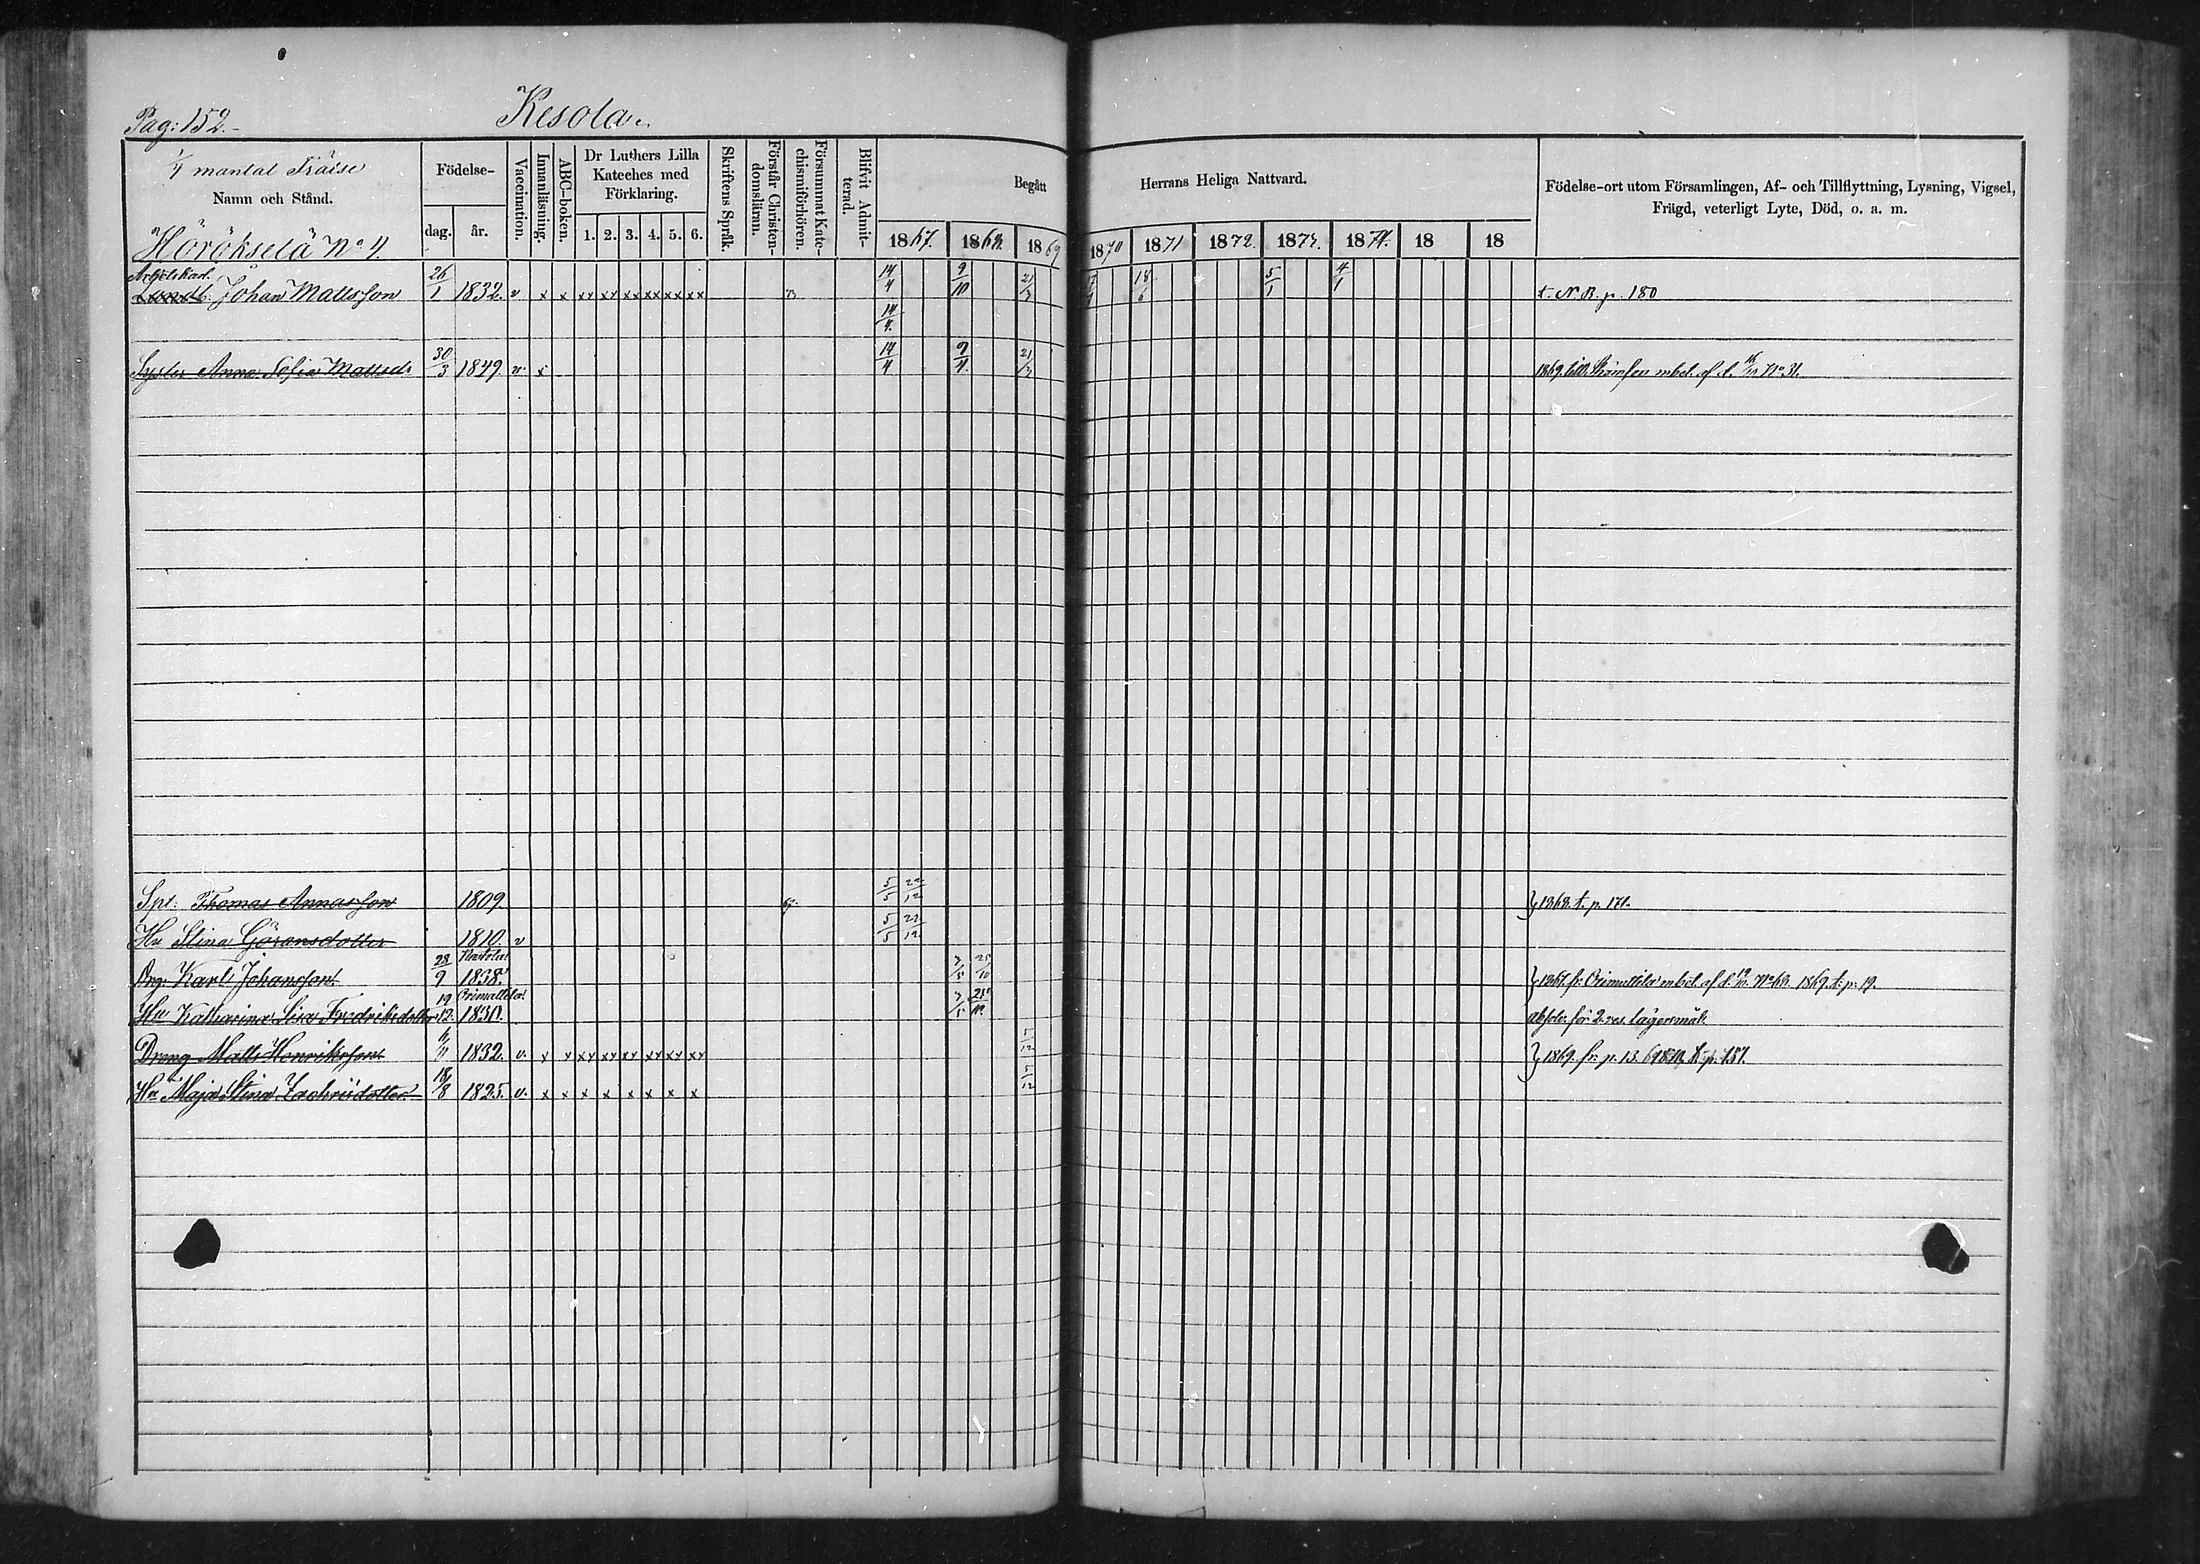 Pag: 152.
Kesola.
1/4 mantal Frälse
Namn och Stånd.
Hörökselä No 4.
Födelse-
dag. år.
Vaccination.
Innanläsning.
ABC-boken.
Dr Luthers Lilla
Kateches med
Förklaring.
1. 2. 3. 4. 5. 6.
Skriftens Språk.
Förstår Christen-
domsläran.
Försummat Kate-
chismiförhören.
Blifvit Admit-
terad.
Begått Herrans Heliga Nattvard.
1867. 1868. 1869 1870 1871 1872. 1873. 1874. 18 18
Födelse-ort utom Församlingen, Af- och Tillflyttning, Lysning, Vigsel,
Frägd, veterligt Lyte, Död, o. a. m.
Arbetskarl.
Johan Mattsson 26/1 1832. v x x xx xx xx xx xx xx 14/4 9/10 21/3 18/6 5/1 4/1 t. N. B. p. 180
14/4.
Syster Anna Sofia Mattsd. 30/3 1849 v. x 14/4 9/4. 21/3 1869 till af d. No 31.
Spl. Thomas Annasson 1809 5/5 22/12 } 1868. t. p. 171.
Hu Stina Göransdotter 1810. v 5/5 22/12
Nastola
Drg. Karl Johansson. 28/9 1838. 3/5 25/10 } 1867. fr. Orimattila m bet. af d. No 68. 1869. t. p. 19.
Orimattila
Hu Katharina Lisa Fredriksdotter 19/12. 1830. 3/5 25/10. absolv. för 2. res. lägersmål.
Dreng Matts Henriksson. 6/11 1832. v. x x xx xx xx xx xx xx 5/12 } 1869. fr. p. 13. t. p. 157.
Hu Maja Stina Zachrisdotter 18/8 1825. v. x x x x x x x x 5/12